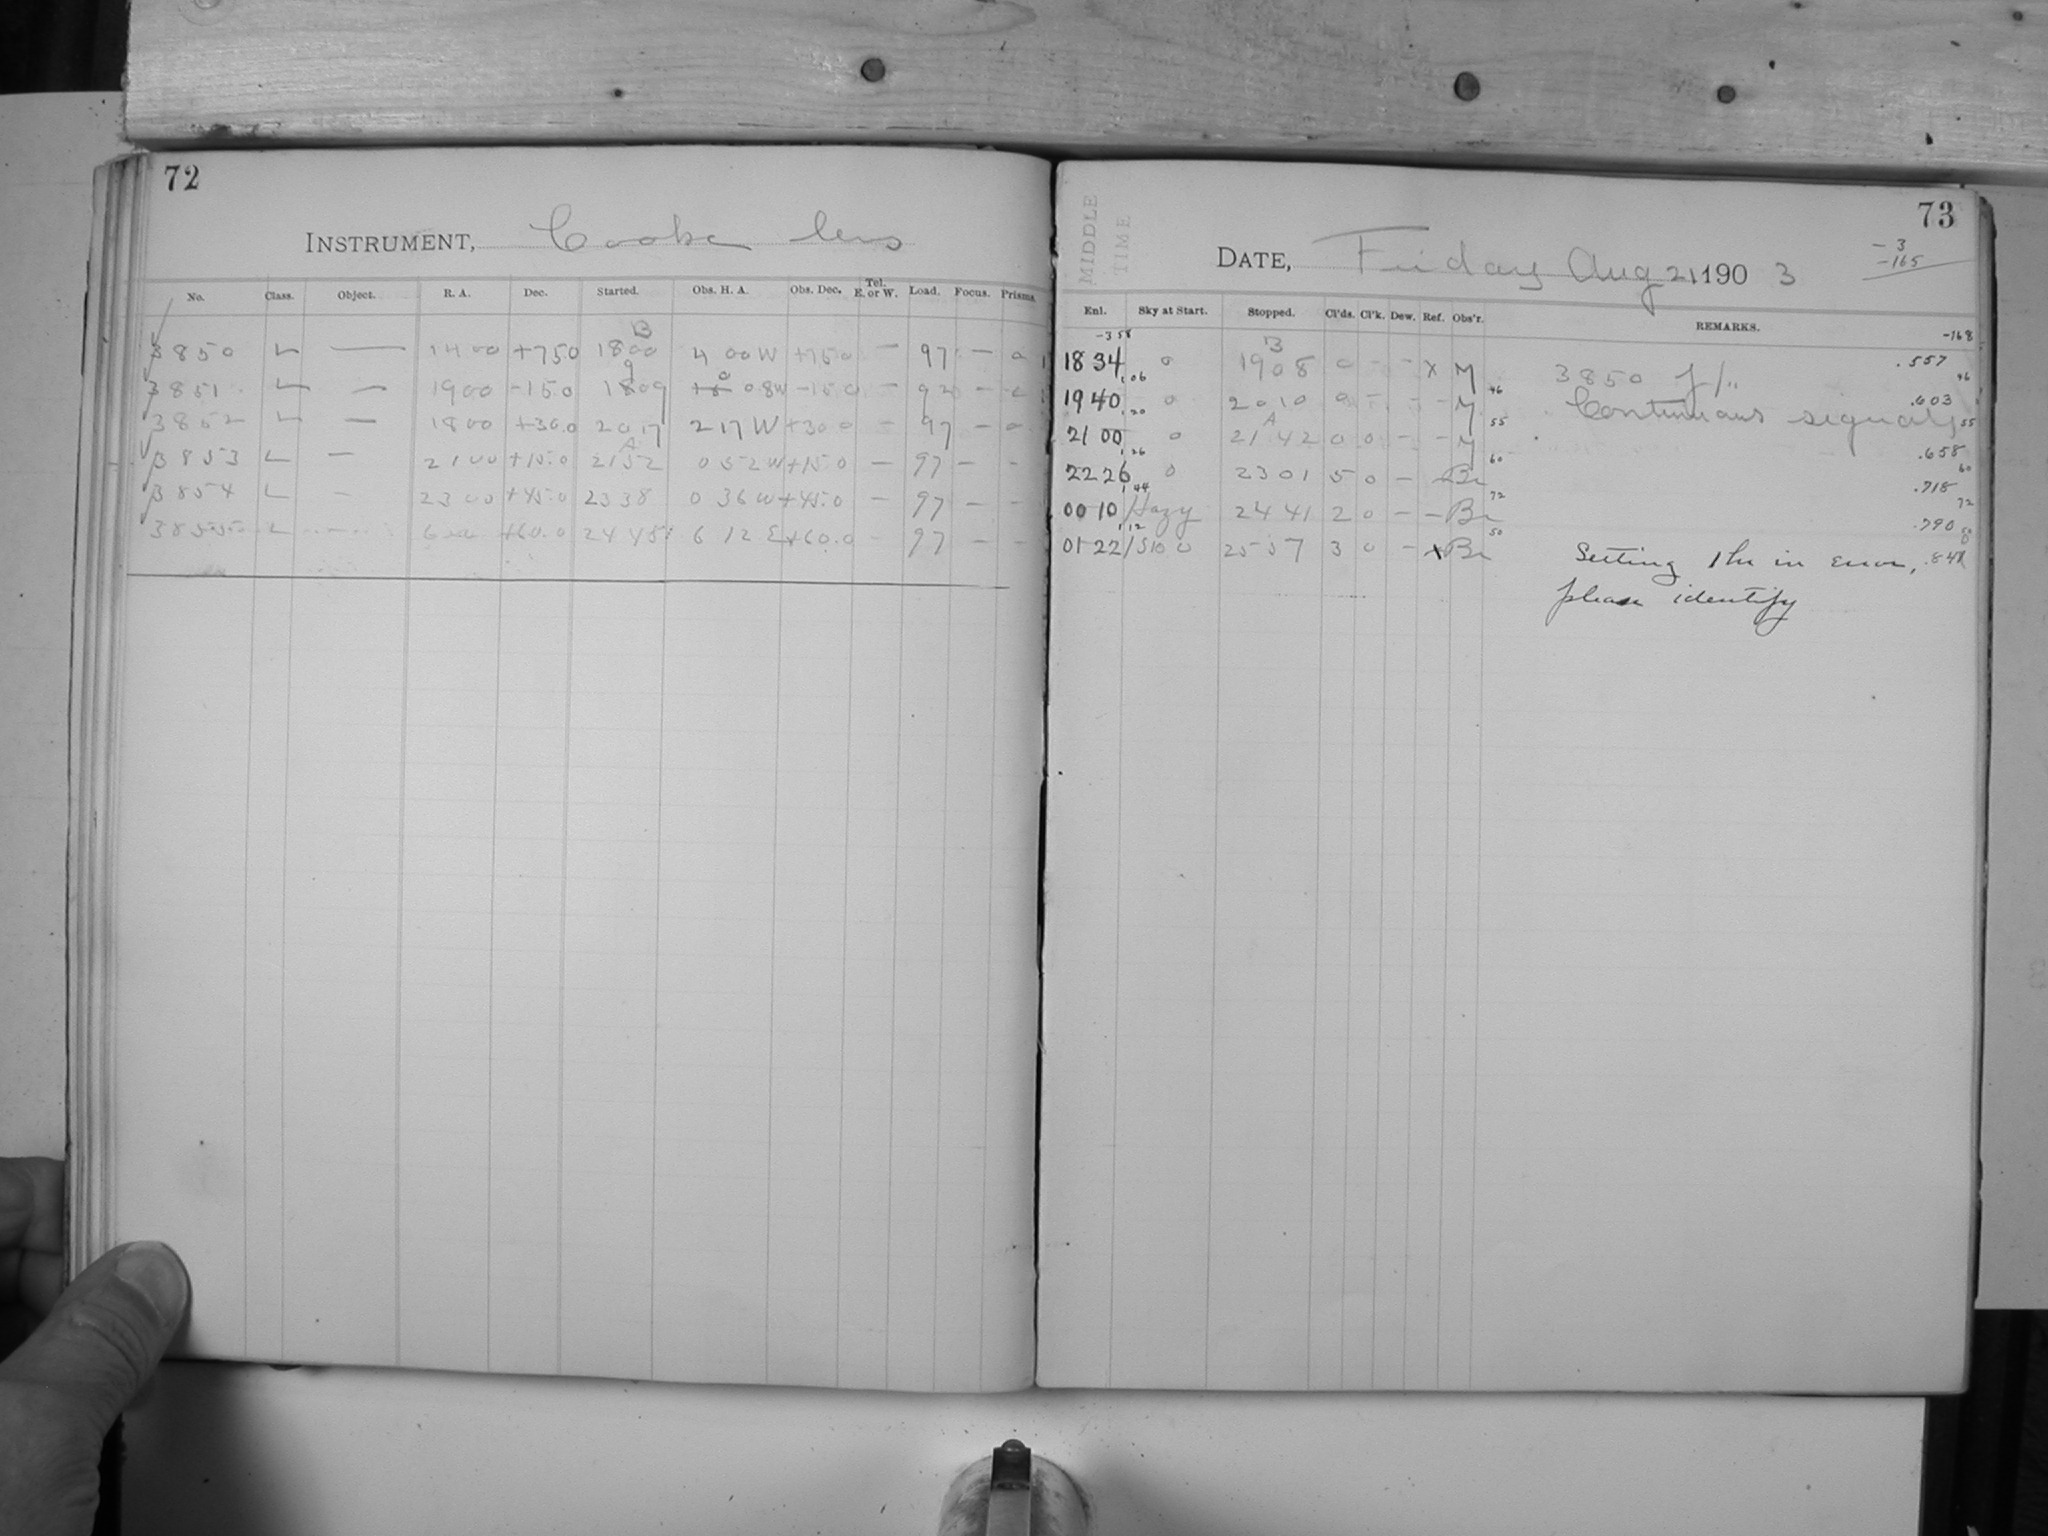 72
INSTRUMENT, Cooke lens
No. Class. Object. R. A. Dec. Started. Obs. H. A. Obs. Dec. Tel. E. or W. Load. Focus. Prisms.
B
3850 L — 1400 +75.0 1800 4 00 W +75.0 — 97 — 0
3851 L — 1900 -15.0 1909 0 08W -15.0 — 92 —
3852 L — 1800 +30.0 2017 2 17 W +30.0 — 97 — 0
A
3853 L — 2100 +15.0 2152 0 52 W +15.0 — 97 — -
3854 L — 2300 +45.0 2338 0 36 W +45.0 — 97 — -
3855 L — 600 +60.0 2445 6 12 E +60.0 - 97 — -
MIDDLE TIME
73
DATE, Friday Aug 21 1903
- 3
-165
Enl. Sky at Start. Stopped. Cl'ds. Cl'k. Dew. Ref. Obs'r. REMARKS.
-358 B -168
1834 0 1908 0 - - x M 3850 .557
1.06 46 46
1940 0 2010 0 - - - M Continuous signals .603
1.20 A 55 55
2100 0 2142 0 0 - - M .658
1.26 60 60
2226 0 2301 5 0 - Br .718
1.44 72 72
0010 Hazy 2441 2 0 - - Br .790
1.12 50
0122 2557 3 0 - x Br Setting 1 hr in error, .84
please identify